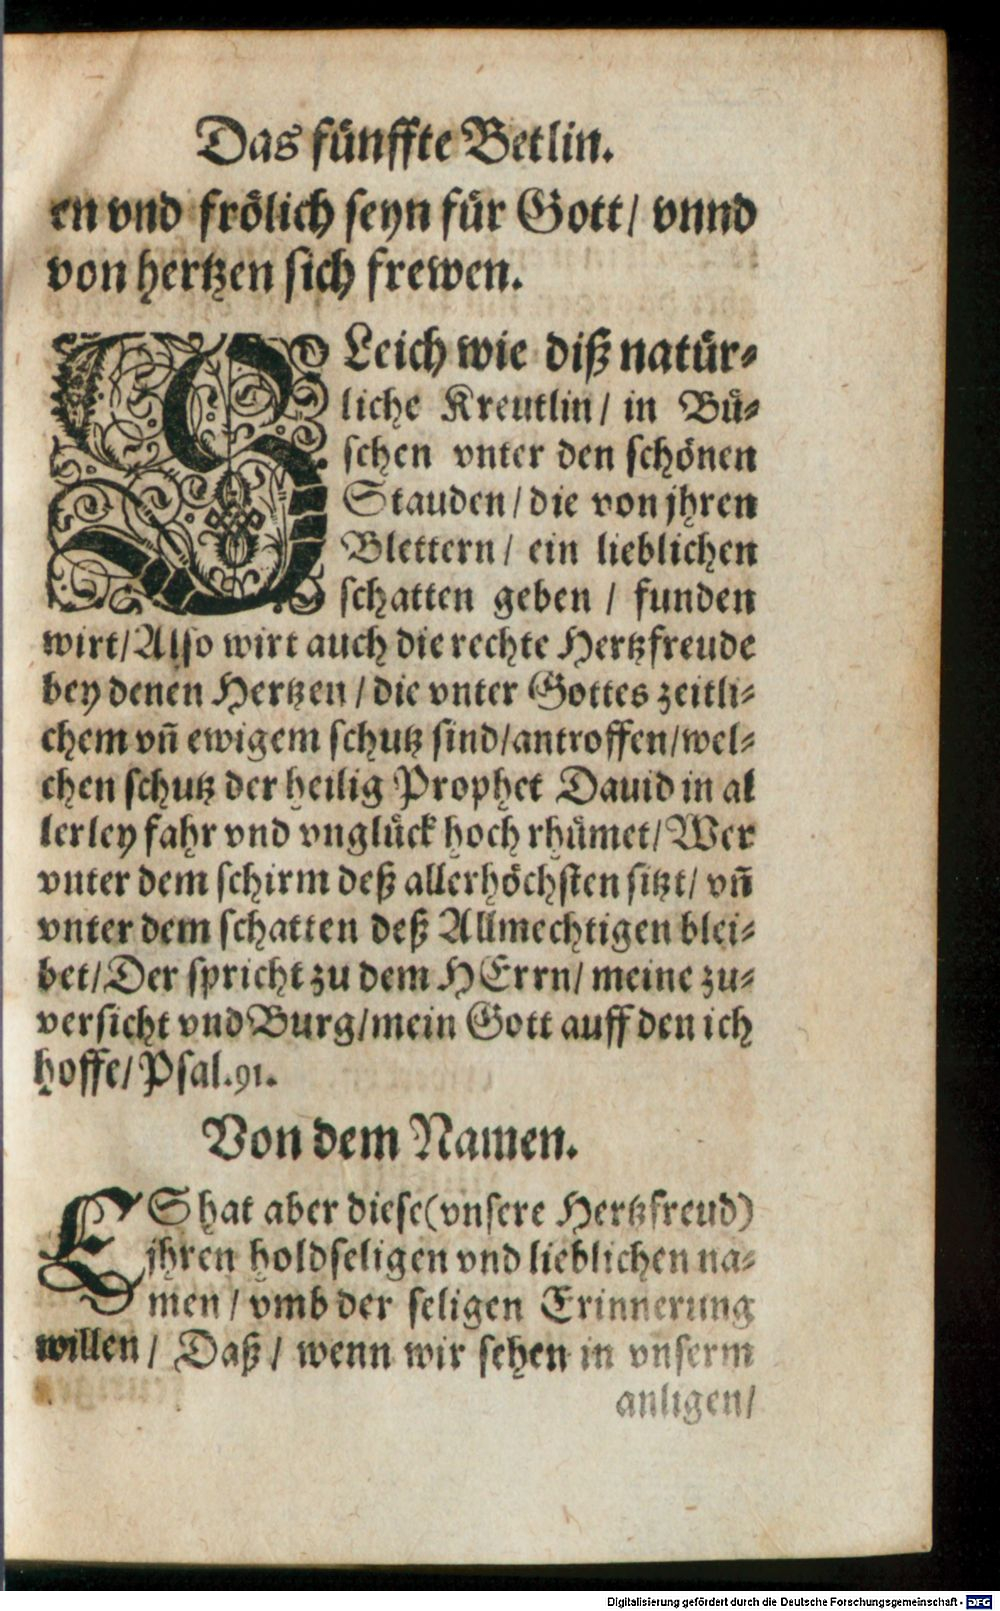 Das fünffte Betlin.
en vnd frölich seyn für Gott/ vnnd
von hertzen sich frewen.
GLeich wie diß natür-
liche Kreutlin/ in Bü-
schen vnter den schönen
Stauden/ die von jhren
Blettern/ ein lieblichen
schatten geben/ funden
wirt/ Also wirt auch die rechte Hertzfreude
bey denen Hertzen/ die vnter Gottes zeitli-
chem vñ ewigem schutz sind/ antroffen/ wel-
chen schutz der heilig Prophet Dauid in al
lerley fahr vnd vnglück hoch rhümet/ Wer
vnter dem schirm deß allerhöchsten sitzt/ vñ
vnter dem schatten deß Allmechtigen blei-
bet/ Der spricht zu dem HErrn/ meine zu-
versicht vnd Burg/ mein Gott auff den ich
hoffe/ Psal. 91.
Von dem Namen.
ES hat aber diese (vnsere Hertzfreud)
jhren holdseligen vnd lieblichen na-
men/ vmb der seligen Erinnerung
willen/ Daß/ wenn wir sehen in vnserm
anligen/
Digitalisierung gefördert durch die Deutsche Forschungsgemeinschaft - DFG